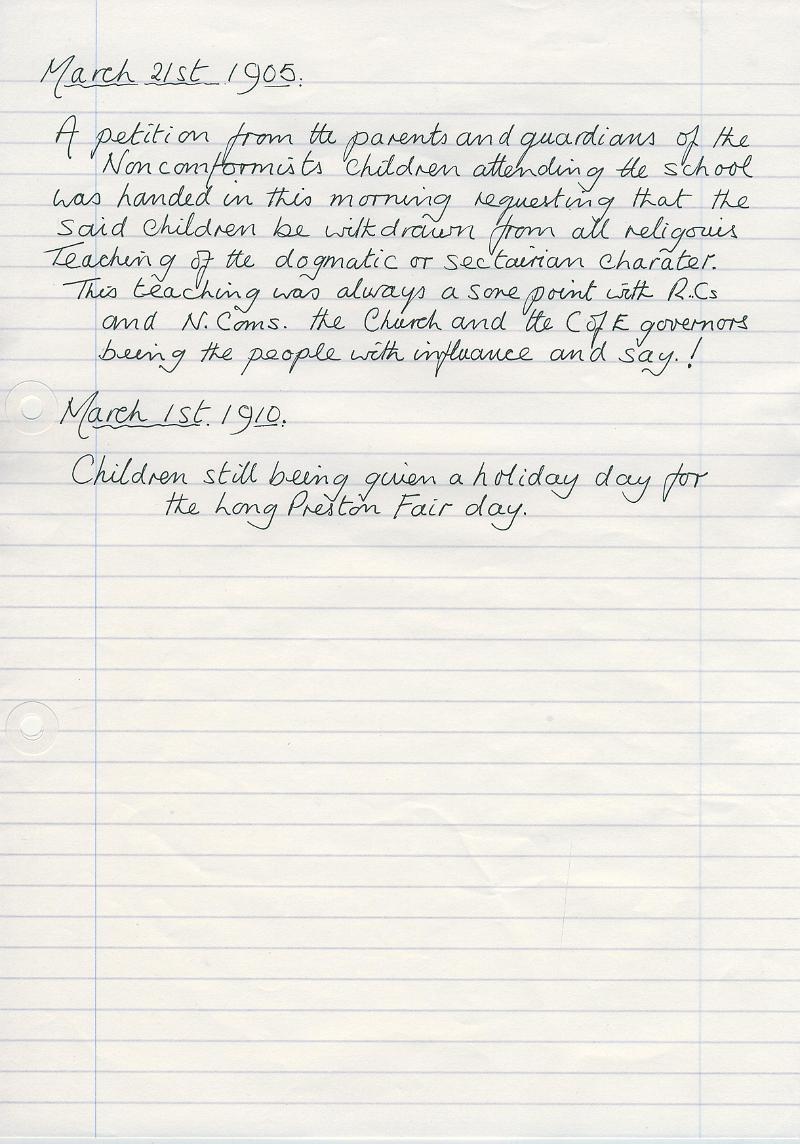 March 21st 1905.
A petition from the parents and guardians of the
Noncomformists children attending the school
was handed in this morning requesting that the
said children be withdrawn from all religouis
Teaching of the dogmatic or sectairian charater.
This teaching was always a sore point with R.Cs
and N.Coms. the Church and the C of E governors
being the people with influance and say.!
March 1st. 1910.
Children still being given a holiday day for
the Long Preston Fair day.